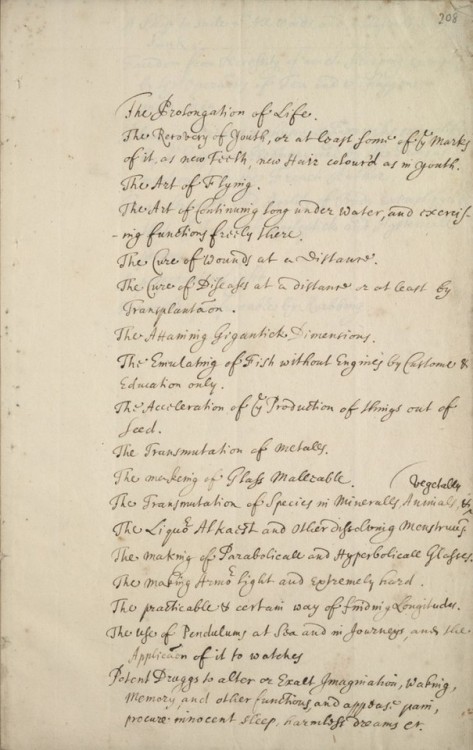 208
The Prolongation of Life.
The Recovery of Youth, or at least some of ye Marks
of it, as new Teeth, new Hair colour'd as in youth.
The Art of Flying.
The Art of Continuing long under water, and exercis-
-ing functions freely there.
The Cure of Wounds at a Distance.
The Cure of Diseases at a distance or at least by
Transplantaon.
The Attaining Gigantick Dimensions.
The Emulating of Fish without Engines by Custome &
Education only.
The Acceleration of ye Production of things out of
Seed.
The Transmutation of Metalls.
The makeing of Glass Malleable.
Vegetalls
The Transmutation of Species in Mineralls, Animals, &
The Liquor Alkaest and Other dissolving Menstruums
The making of Parabolicall and Hyperbolicall Glasses.
The making Armor light and extremely hard.
The practicable & certain way of finding Longitudes.
The use of Pendulums at Sea and in Journeys, and the
Applicaon of it to watches
Potent Druggs to alter or Exalt Imagination, Waking,
Memory, and other functions, and appease pain,
procure innocent sleep, harmless dreams etc.